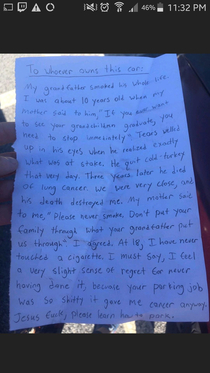 46% 11:32 PM
To whoever owns this car:
My grandfather smoked his whole life.
I was about 10 years old when my
mother said to him, "If you ever want
to see your grandchildren graduate, you
need to stop immediately." Tears welled
up in his eyes when he realized exactly
what was at stake. He quit cold-turkey
that very day. Three years later he died
of lung cancer. We were very close, and
his death destroyed me. My mother said
to me, "Please never smoke. Don't put your
family through what your grandfather put
us through." I agreed. At 18, I have never
touched a cigarette. I must say, I feel
a very slight sense of regret for never
having done it, because your parking job
was so shitty it gave me cancer anyway.
Jesus fuck, please learn how to park.